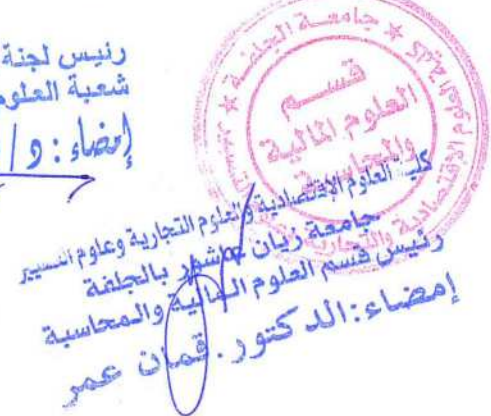 رئيس لجنة
شعبة العلوم
إمضاء : د /
جامعة الجلفة
قسم
العلوم المالية
والمحاسبة
كلية العلوم الاقتصادية والعلوم التجارية وعلوم التسيير
جامعة زيان عاشور بالجلفة
رئيس قسم العلوم المالية والمحاسبة
إمضاء: الدكتور. قمان عمر